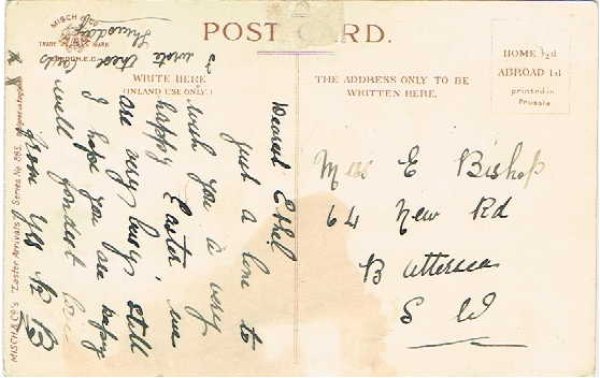 MISCH & Co
TRADE MARK
LONDON. E.C.
POST CARD.
WRITE HERE
(INLAND USE ONLY)
THE ADDRESS ONLY TO BE
WRITTEN HERE.
HOME ½d
ABROAD 1d
printed in
Prussia
Thursday
wrote these cards
Dearest Ethel
just a line to
wish you a very
happy Easter, we
are very busy, still
I hope you are keeping
well fondest love
from
Miss E Bishop
64 New Rd
Battersea
S W
MISCH & Co's "Easter Series No. 893.